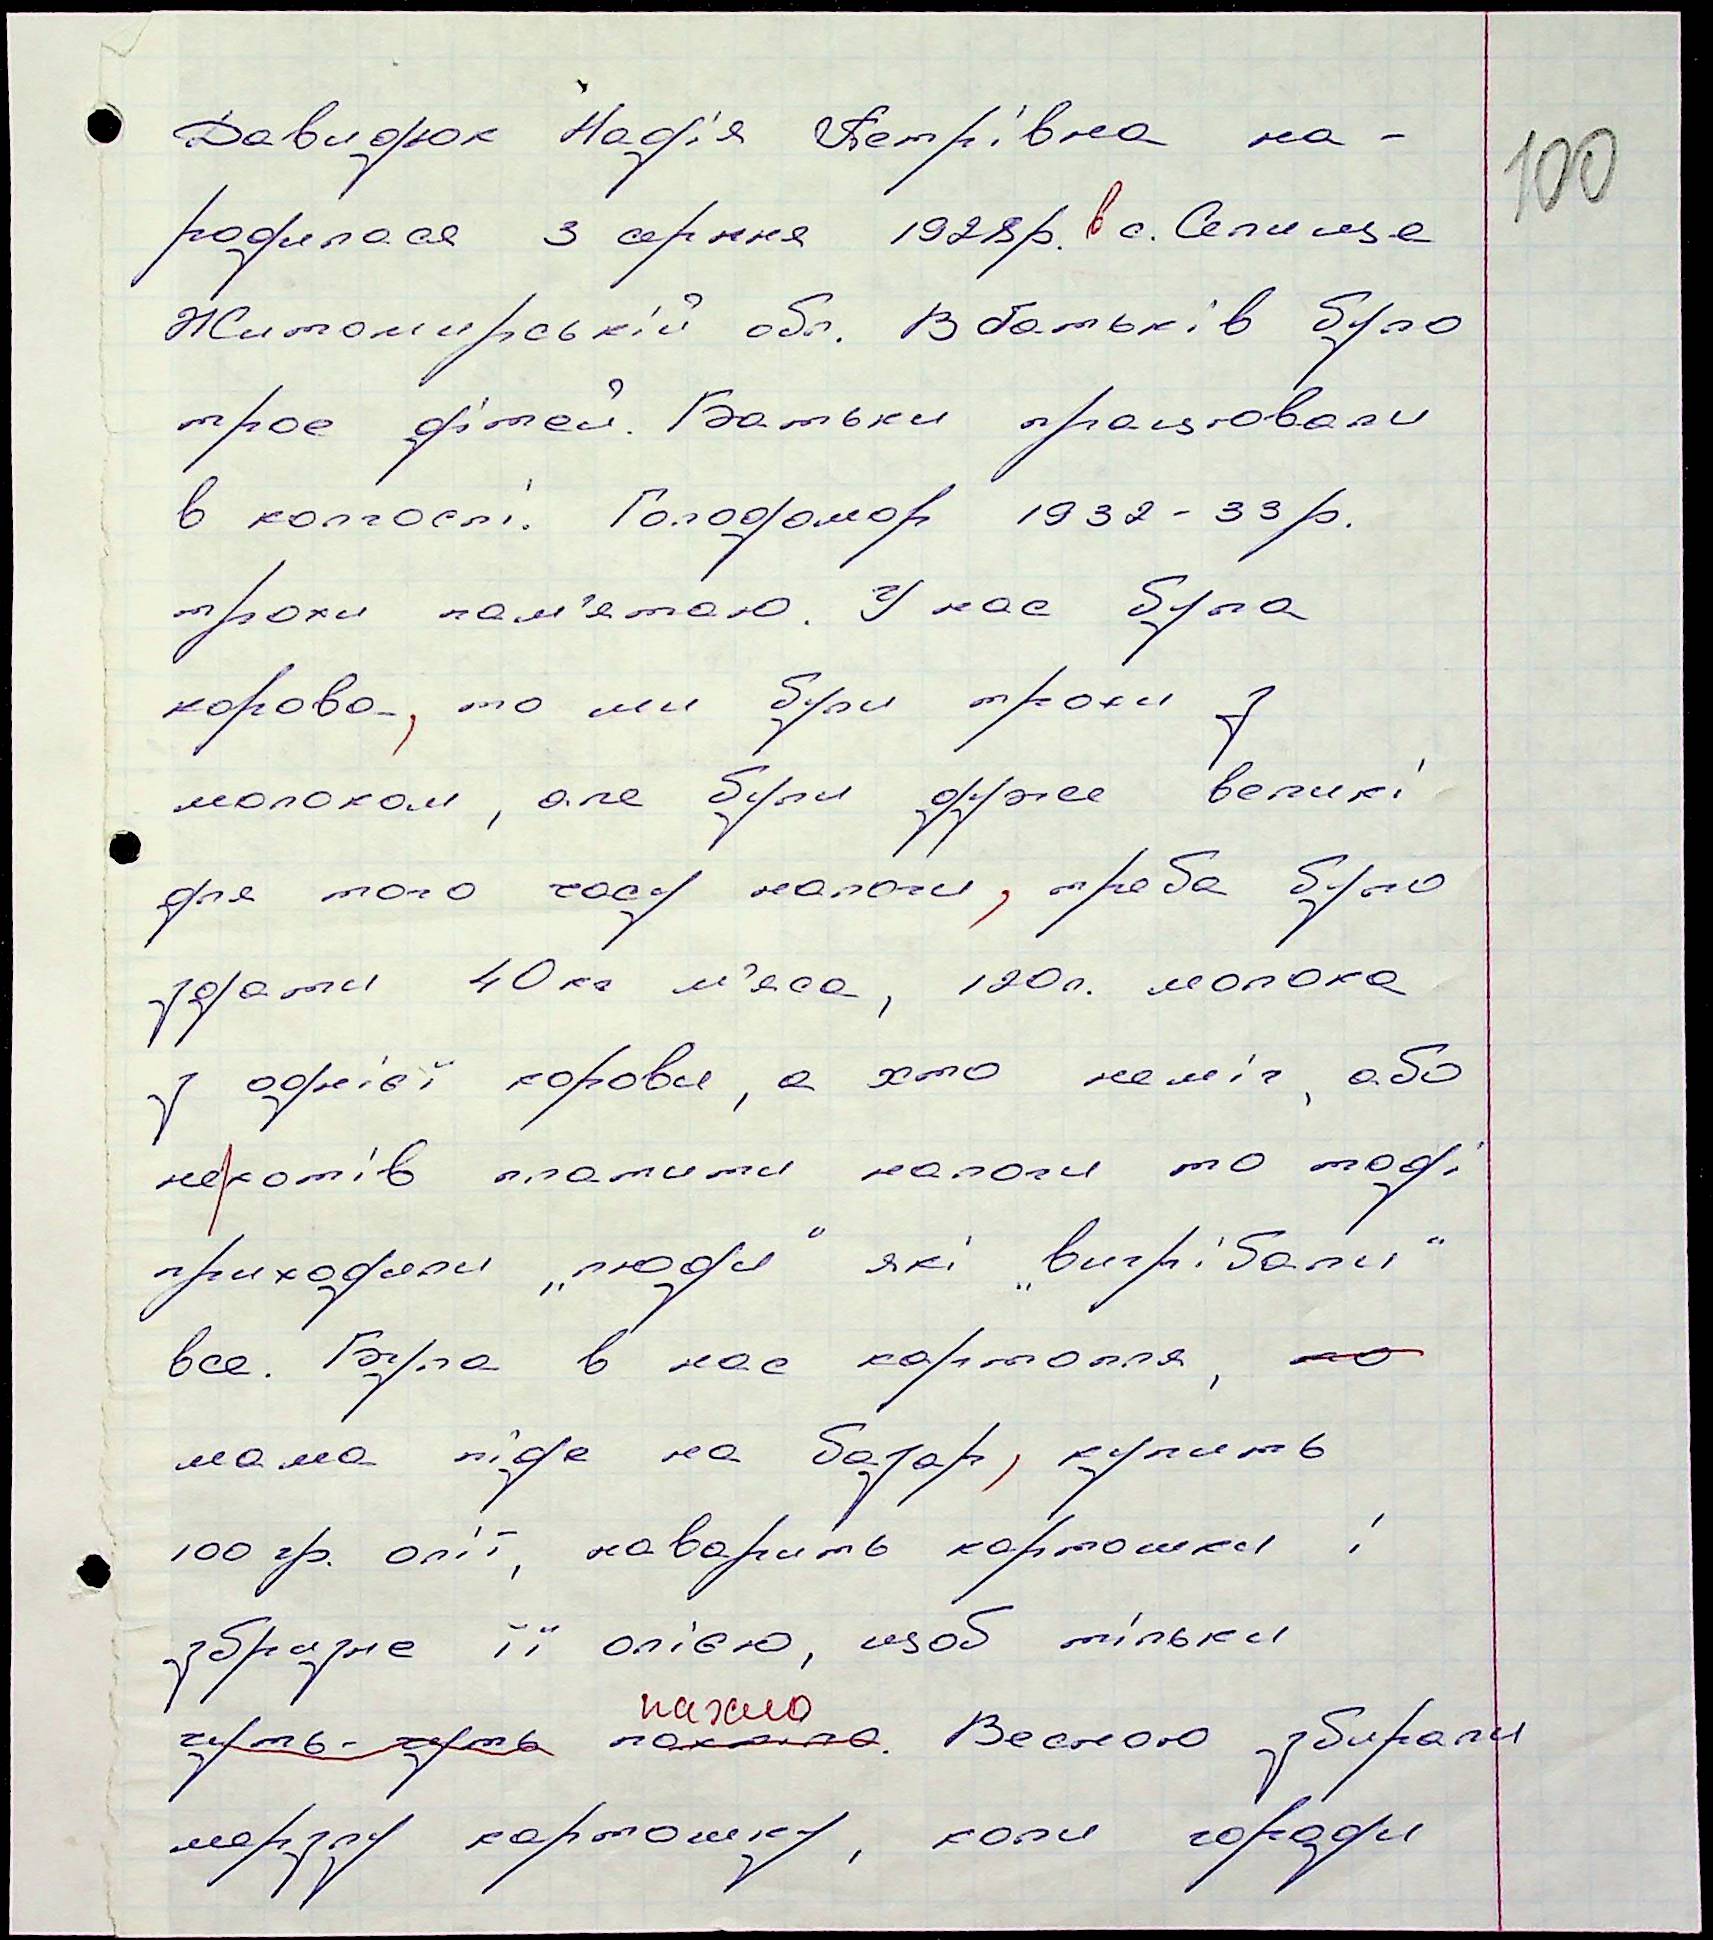 Давидюк Надія Петрівна на-
100
родилася 3 серпня 1928р. в с. Селище
Житомирській обл. В батьків було
троє дітей. Батьки працювали
в колгоспі. Голодомор 1932-33р.
трохи пам'ятаю. У нас була
корова, то ми були трохи з
молоком, але були дуже великі
для того часу налоги, треба було
здати 40кг м'яса, 120л. молока
з однієї корови, а хто неміг, або
нехотів платити налоги то тоді
приходили „люди“ які „вигрібали“
все. Була в нас картопля, то
мама піде на базар, купить
100 гр. олії, наварить картошки і
збризне її олією, щоб тільки
пахло
чуть-чуть пахнло. Весною збирали
мерзлу картошку, коли городи